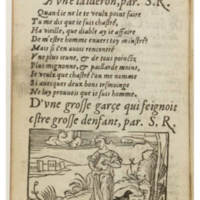 A vne laideron, par. S. R.
Quand ie ne le te veulx point faire
Tu me dis que ie suis chastré,
Ha vieille, que diable ay ie affaire
De m'estre homme enuers toy monstré?
Mais si i'en auois rencontré
Vne plus ieune, & de tous poinctz
Plus mignonne, & paillarde moins,
Ie veulx que chastré l'on me nomme
Si auecques deux bons tesmoings
Ne luy prouuois que ie suis homme.
D'vne grosse garçe qui feignoit
estre grosse denfant, par. S. R.